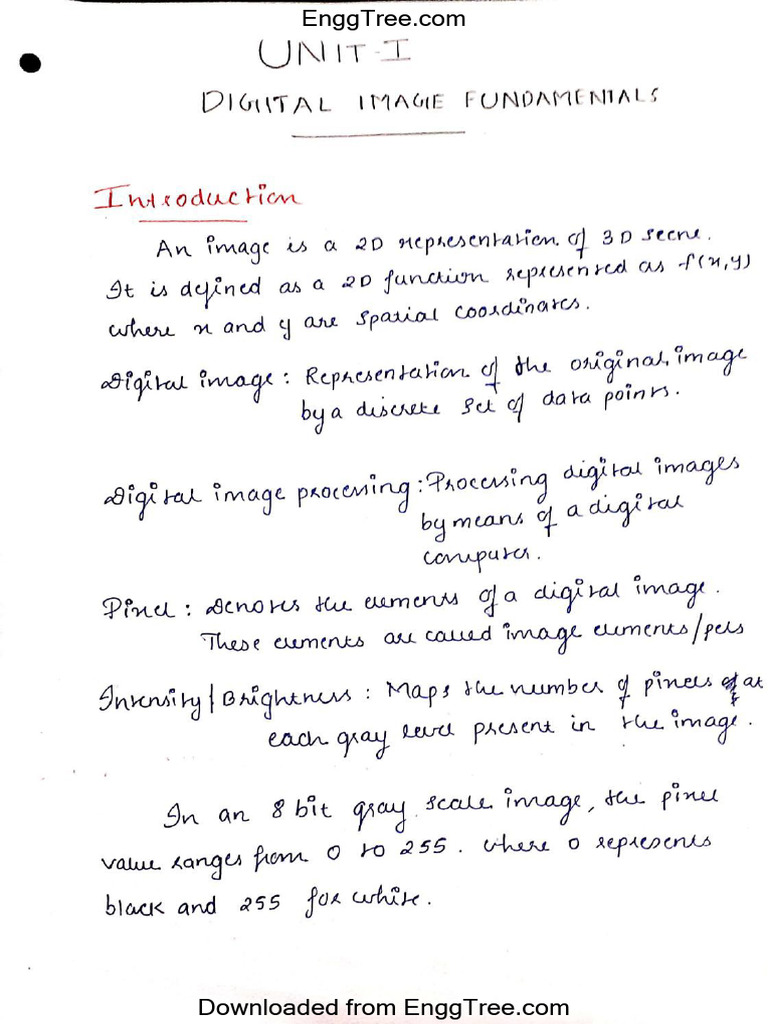 EnggTree.com
UNIT-I
DIGIITAL IMAGE FUNDAMENTALS
Introduction
An image is a 2D representation of 3D scene.
It is defined as a 2D function represented as f(x,y)
where x and y are spatial coordinates.
Digital image : Representation of the original image
by a discrete set of data points.
Digital image processing : Processing digital images
by means of a digital
computer.
Pixel : Denotes the elements of a digital image.
These elements are called image elements/pels
Intensity/Brightness : Maps the number of pixels at
each gray level present in the image.
In an 8 bit gray scale image, the pixel
value ranges from 0 to 255. where 0 represents
black and 255 for white.
Downloaded from EnggTree.com